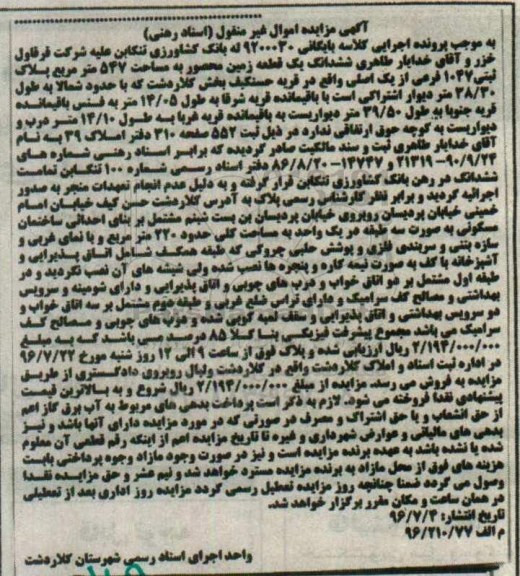 آگهی مزایده اموال غیر منقول (اسناد رهنی)
به موجب پرونده اجرایی کلاسه بایگانی ۹۲۰۰۰۳۰ له بانک کشاورزی تنکابن علیه شرکت قرقاول
خزر و آقای خدایار طاهری ششدانگ یک قطعه زمین محصور به مساحت ۵۴۷ متر مربع پلاک
ثبتی ۱۰۴۷ فرعی از یک اصلی واقع در قریه حسنکیف بخش کلاردشت که با حدود شمالا به طول
۳۸/۳۰ متر دیوار اشتراکی است با باقیمانده قریه شرقا به طول ۱۴/۰۵ متر به فنس باقیمانده
قریه جنوبا به طول ۳۹/۵۰ متر دیواریست به باقیمانده قریه غربا به طول ۱۴/۱۰ متر درب و
دیواریست به کوچه حوق ارتفاقی ندارد در ذیل ثبت ۵۵۲ صفحه ۳۱۰ دفتر املاک ۳۹ به نام
آقای خدایار طاهری ثبت و سند مالکیت صادر گردیده که برابر اسناد رهنی شماره های
۹۰/۹/۲۴-۲۱۳۱۹ و ۱۳۷۴۷-۸۶/۸/۲۰ دفتر اسناد رسمی شماره ۱۰۰ تنکابن تمامت
ششدانگ در رهن بانک کشاورزی تنکابن قرار گرفته و به دلیل عدم انجام تعهدات منجر به صدور
اجرائیه گردید و برابر نظر کارشناس رسمی پلاک به آدرس کلاردشت حسن کیف خیابان امام
خمینی خیابان پردیسان روبروی خیابان پردیسان بن بست شبنم مشتمل بر بنای احداثی ساختمان
مسکونی به صورت سه طبقه در یک واحد به مساحت کلی حدود ۲۲۰ متر مربع و با نمای غربی و
سازه بتنی و سربندی فلزی و پوشش حلبی چروکی که طبقه همکف شامل اتاق پذیرایی و
آشپزخانه با کف به صورت نیمه کاره و پنجره ها نصب شده ولی شیشه های آن نصب نگردید و در
طبقه اول مشتمل بر دو اتاق خواب و درب های چوبی و اتاق پذیرایی و دارای شومینه و سرویس
بهداشتی و مصالح کف سرامیک و دارای تراس ضلع غربی و طبقه دوم مشتمل بر سه اتاق خواب و
دو سرویس بهداشتی و اتاق پذیرایی و سقف لمبه کوبی شده و درب های چوبی و مصالح کف
سرامیک می باشد مجموع پیشرفت فیزیکی بنا کلا ۸۵ درصد می باشد که به مبلغ
۲/۱۹۴/۰۰۰/۰۰۰ ریال ارزیابی شده و پلاک فوق از ساعت ۹ الی ۱۲ روز شنبه مورخ ۹۶/۷/۲۲
در اداره ثبت اسناد و املاک کلاردشت واقع در کلاردشت ولبال روبروی دادگستری از طریق
مزایده به فروش می رسد. مزایده از مبلغ ۲/۱۹۴/۰۰۰/۰۰۰ ریال شروع و به بالاترین قیمت
پیشنهادی نقدا فروخته می شود. لازم به ذکر است پرداخت بدهی های مربوط به آب برق گاز اعم
از حق انشعاب و یا حق اشتراک و مصرف در صورتی که در مورد مزایده دارای آنها باشد و نیز
بدهی های مالیاتی و عوارض شهرداری و غیره تا تاریخ مزایده اعم از اینکه رقم قطعی آن معلوم
شده یا نشده باشد به عهده برنده مزایده است و نیز در صورت وجود مازاد وجوه پرداختی بابت
هزینه های فوق از محل مازاد به برنده مزایده مسترد خواهد شد و نیم عشر و حق مزایده نقدا
وصول می گردد ضمنا چنانچه روز مزایده تعطیل رسمی گردد مزایده روز اداری بعد از تعطیلی
در همان ساعت و مکان مقرر برگزار خواهد شد.
تاریخ انتشار: ۹۶/۷/۴
م الف ۹۶/۲۱۰/۷۷
واحد اجرای اسناد رسمی شهرستان کلاردشت